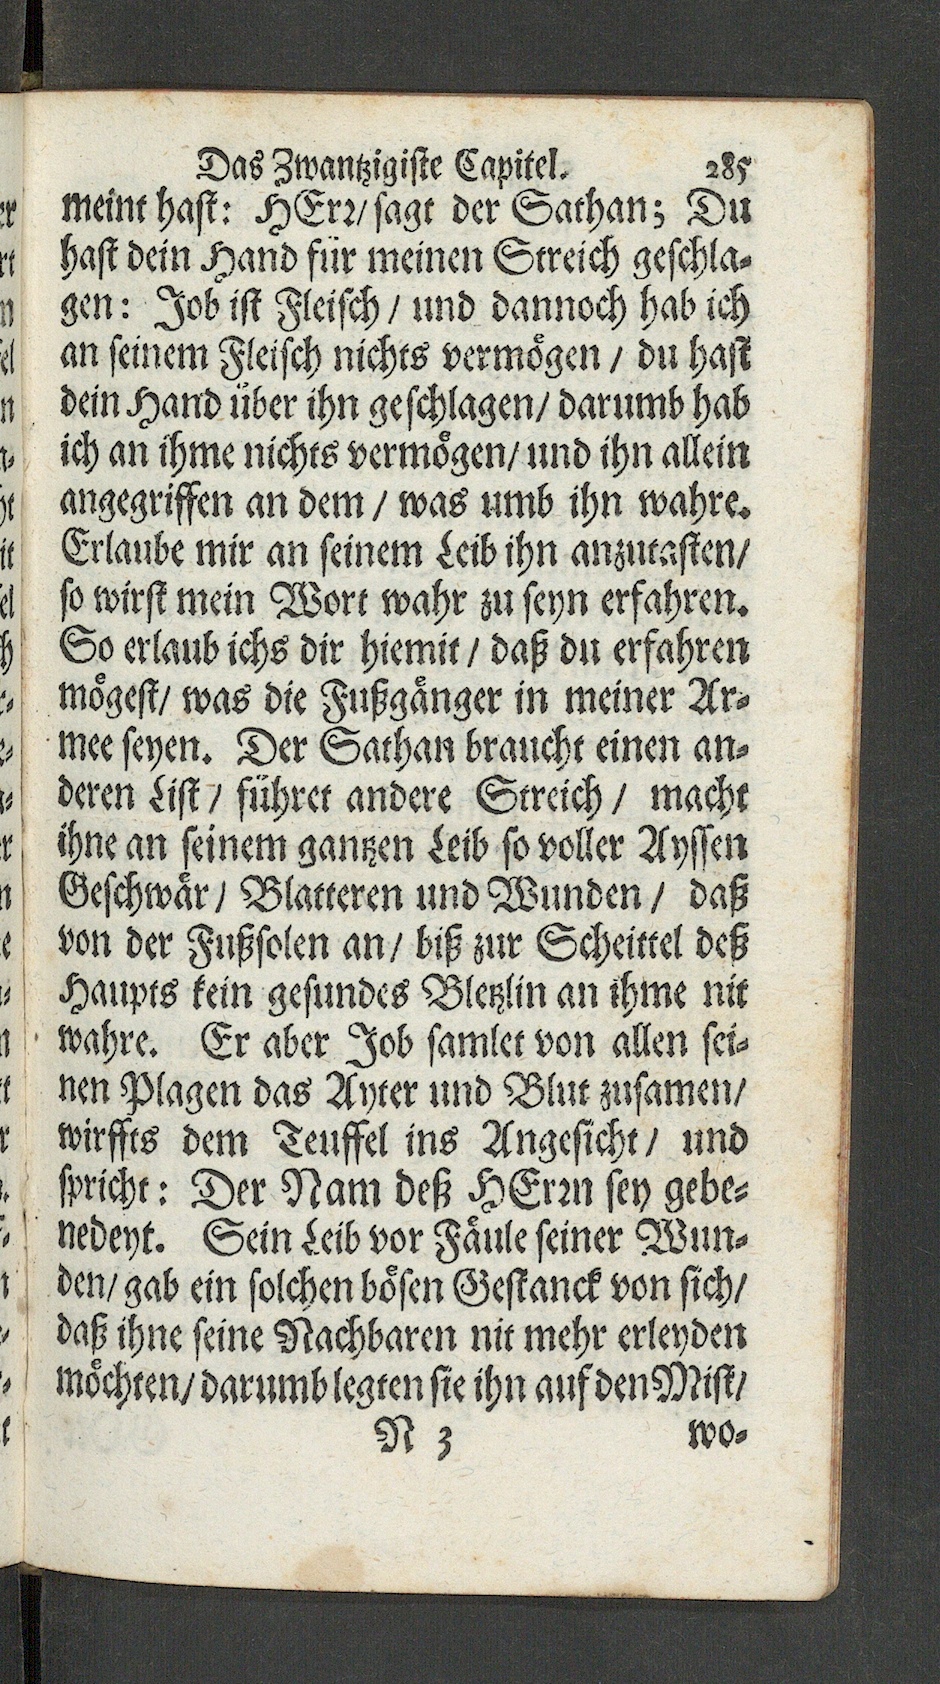 Das Zwantzigiste Capitel. 285
meint hast: HErr/ sagt der Sathan; Du
hast dein Hand für meinen Streich geschla-
gen: Job ist Fleisch / und dannoch hab ich
an seinem Fleisch nichts vermögen / du hast
dein Hand über ihn geschlagen/ darumb hab
ich an ihme nichts vermögen/ und ihn allein
angegriffen an dem / was umb ihn wahre.
Erlaube mir an seinem Leib ihn anzutasten/
so wirst mein Wort wahr zu seyn erfahren.
So erlaub ichs dir hiemit / daß du erfahren
mögest/ was die Fußgänger in meiner Ar-
mee seyen. Der Sathan braucht einen an-
deren List / führet andere Streich / macht
ihne an seinem gantzen Leib so voller Ayssen
Geschwär / Blatteren und Wunden / daß
von der Fußsolen an / biß zur Scheittel deß
Haupts kein gesundes Bletzlin an ihme nit
wahre. Er aber Job samlet von allen sei-
nen Plagen das Ayter und Blut zusamen/
wirffts dem Teuffel ins Angesicht / und
spricht: Der Nam deß HErrn sey gebe-
nedeyt. Sein Leib vor Fäule seiner Wun-
den/ gab ein solchen bösen Gestanck von sich/
daß ihne seine Nachbaren nit mehr erleyden
möchten/ darumb legten sie ihn auf den Mist/
N 3 wo-